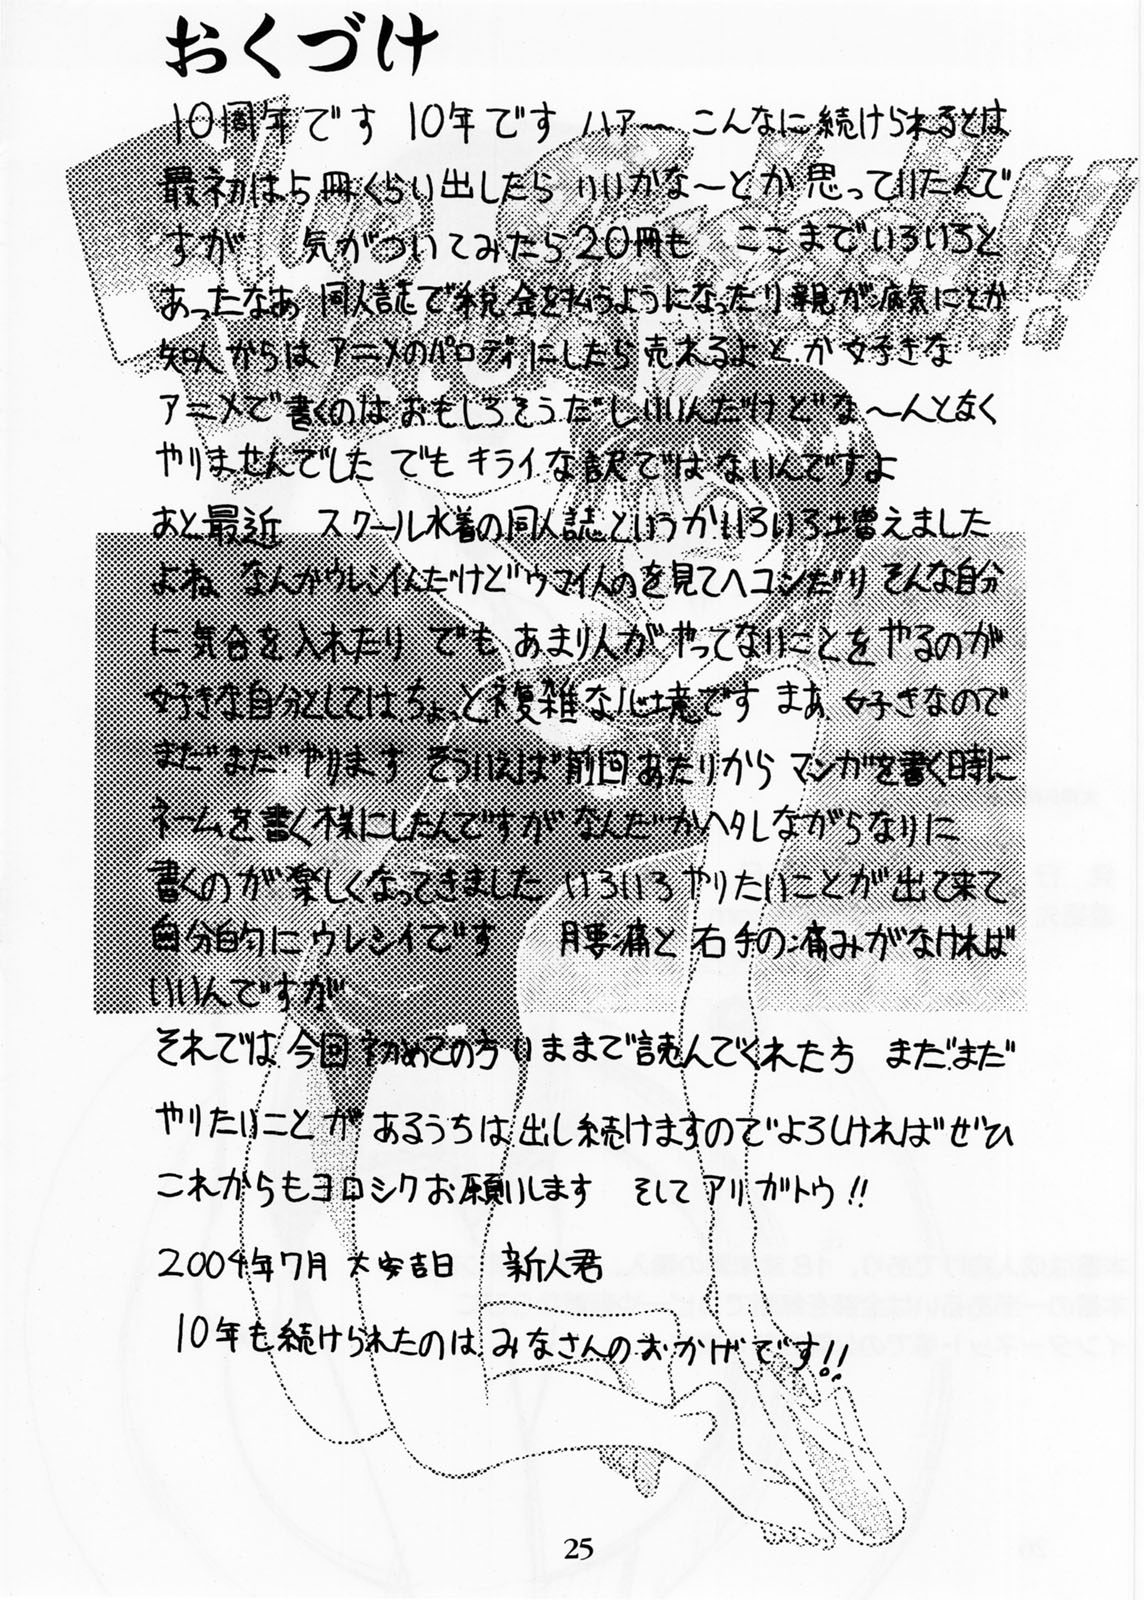 おくづけ
10周年です 10年です ハァ〜 こんなに続けられるとは
最初は5冊くらい出したら いいかな〜とか思っていたんで
すが 気がついてみたら20冊も ここまでいろいろと
あったなあ 同人誌で税金を払うようになったり親が病気にとか
知人からはアニメのパロディにしたら売れるよとか好きな
アニメで書くのはおもしろそうだしいいんだけどな〜んとなく
やりませんでした でもキライな訳ではないんですよ
あと最近 スクール水着の同人誌というかいろいろ増えました
よね なんかウレシイんだけどウマイ人のを見てヘコンだり そんな自分
に気合を入れたり でも あまり人がやってないことをやるのが
好きな自分としてはちょっと複雑な心境です まあ 好きなので
まだまだ やります そういえば前回あたりから マンガを書く時に
ネームを書く様にしたんですが なんだかヘタレながらなりに
書くのが楽しくなってきました いろいろやりたいことが出て来て
自分的にウレシイです 腰痛と右手の痛みがなければ
いいんですが
それでは 今回初めての方 いままで読んでくれた方 まだまだ
やりたいことが あるうちは出し続けますのでよろしければぜひ
これからもヨロシクお願いします そしてアリガトウ!!
2004年7月 大安吉日 新人君
10年も続けられたのは みなさんのおかげです!!
25